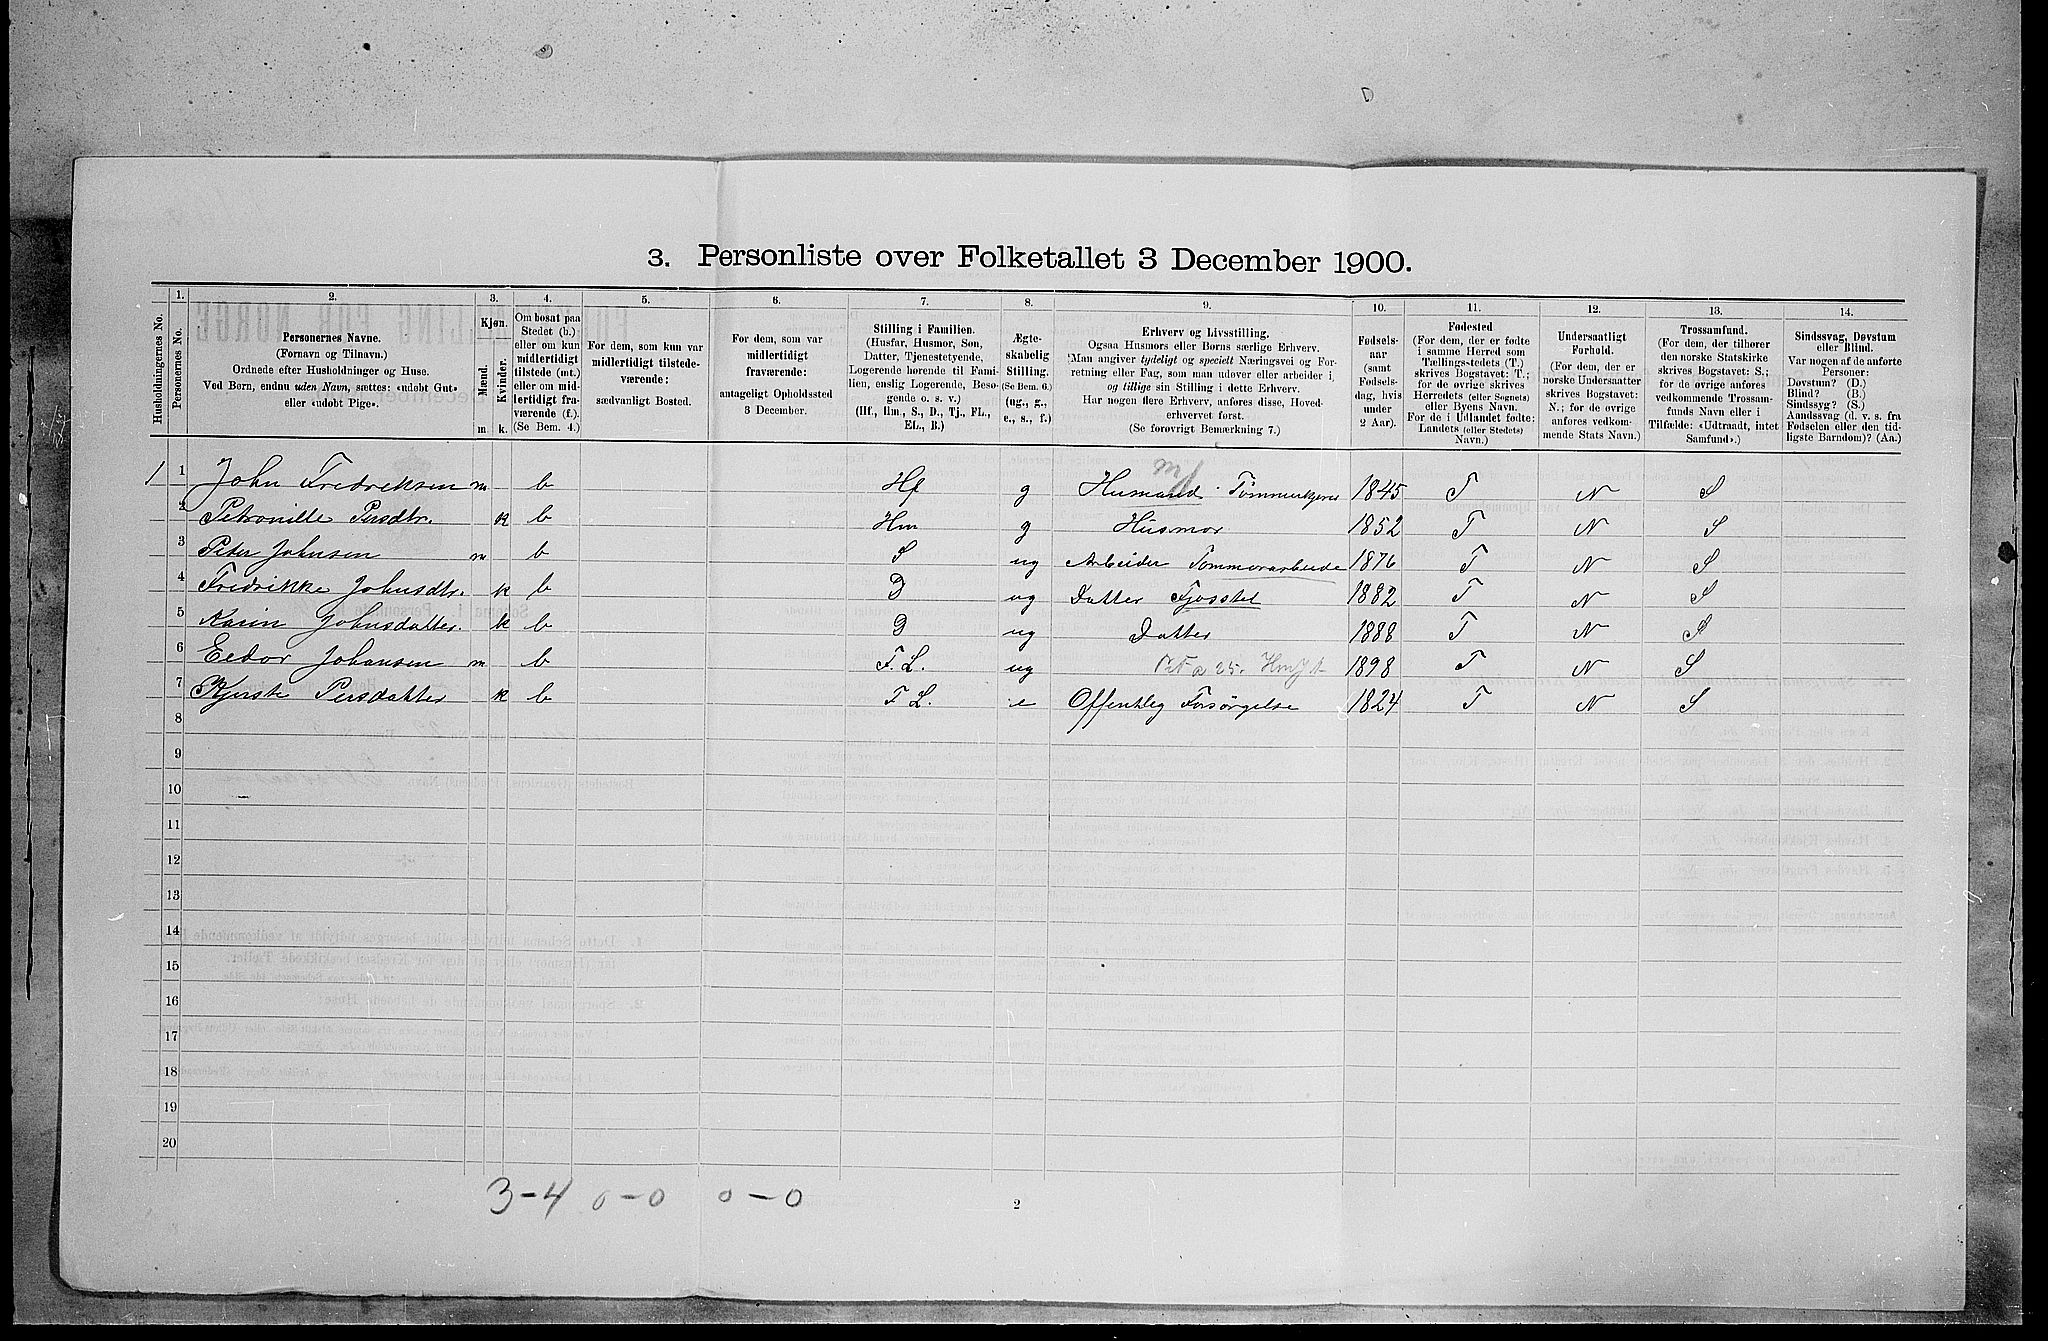 3. Personliste over Folketallet 3 December 1900.
Husholdningernes No.
1.
Personernes No.
2.
Personernes Navne.
(Fornavn og Tilnavn.)
Ordnede efter Husholdninger og Huse.
Ved Børn, endnu uden Navn, sættes: «udøbt Gut»
eller «udøbt Pige».
3.
Kjøn.
Mænd.
Kvinder.
m. k.
4.
Om bosat paa
Stedet (b.)
eller om kun
midlertidigt
tilstede (mt.)
eller om mid-
lertidigt fra-
værende (f.).
(Se Bem. 4.)
5.
For dem, som kun var
midlertidigt tilstede-
værende:
sædvanligt Bosted.
6.
For dem, som var
midlertidigt
fraværende:
antageligt Opholdssted
3 December.
7.
Stilling i Familien.
(Husfar, Husmor, Søn,
Datter, Tjenestetyende,
Logerende hørende til Fami-
lien, enslig Logerende, Besø-
gende o. s. v.)
(Hf., Hm., S., D., Tj., FL.,
EL., B.)
8.
Ægte-
skabelig
Stilling.
(Se Bem. 6.)
(ug., g.,
e., s., f.)
9.
Erhverv og Livsstilling.
Ogsaa Husmors eller Børns særlige Erhverv.
Man angiver tydeligt og specielt Næringsvei og For-
retning eller Fag, som man udøver eller arbeider i,
og tillige sin Stilling i dette Erhverv.
Har nogen flere Erhverv, anføres disse, Hoved-
erhvervet først.
(Se forøvrigt Bemærkning 7.)
10.
Fødsels-
aar
(samt
Fødsels-
dag, hvis
under
2 Aar).
11.
Fødested
(For dem, der er fødte
i samme Herred som
Tællings-stedets (T.)
skrives Bogstavet: T.;
for de øvrige skrives
Herredets (eller Sognets)
eller Byens Navn.
For de i Udlandet fødte:
Landets (eller Stedets)
Navn.)
12.
Undersaatligt
Forhold.
(For dem, der er
norske Undersaatter
skrives Bogstavet:
N.; for de øvrige
anføres vedkom-
mende Stats Navn.)
13.
Trossamfund.
(For dem, der tilhører
den norske Statskirke
skrives Bogstavet: S.;
for de øvrige anføres
vedkommende Trossam-
funds Navn eller i
Tilfælde: «Udtraadt, intet
Samfund».)
14.
Sindssvag, Døvstum
eller Blind.
Var nogen af de anførte
Personer:
Døvstum? (D.)
Blind? (B.)
Sindssyg? (S.)
Aandssvag (d. v. s. fra
Fødselen eller den tid-
ligste Barndom)? (Aa.)
1 1 John Fredriksen m b Hf g Husmand Tømmerkjører 1845 T N S
2 Petronille Persdtr. k b Hm g Husmor 1852 T N S
3 Peter Johnsen m b S ug Arbeider Tømmerarbeide 1876 T N S
4 Fredrikke Johnsdtr. k b D ug Datter Fjosstel 1882 T N S
5 Karin Johnsdatter. k b D ug Datter 1888 T N S
6 Eedor Johansen m b F. L. ug 1898 T N S
7 Kjerste Persdatter k b F L. e Offentlig Forsørgelse 1824 T N S
8
9
10
11
12
13
14
15
16
17
18
19
20
3-4 0-0 0-0
2